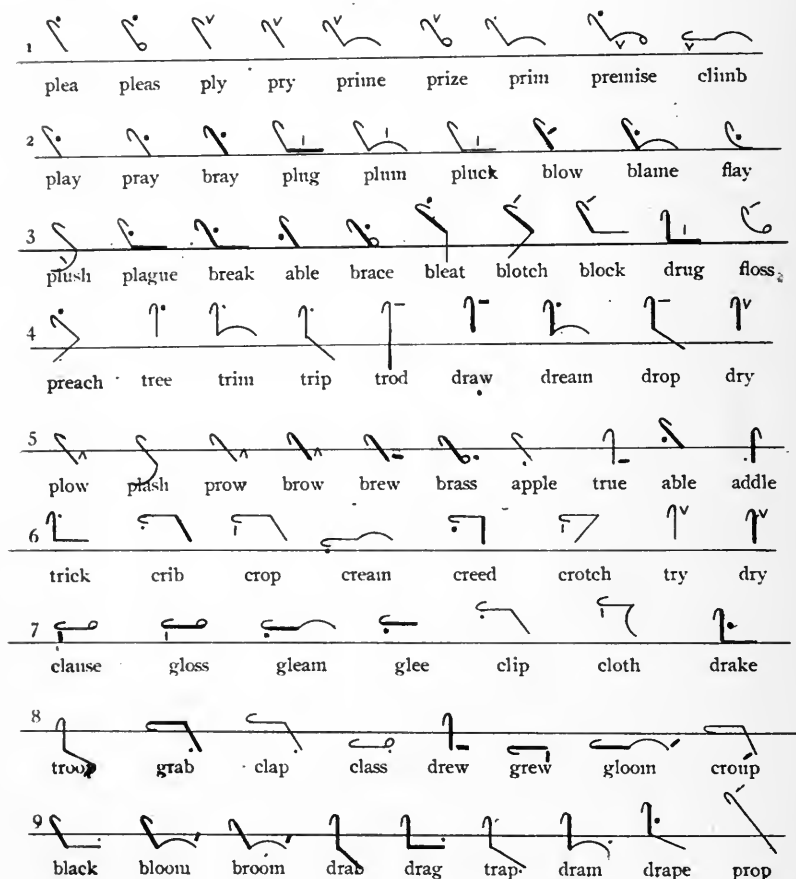 1 plea pleas ply pry prime prize prim premise climb
2 play pray bray plug plum pluck blow blame flay
3 plush plague break able brace bleat blotch block drug floss
4 preach tree trim trip trod draw dream drop dry
5 plow plash prow brow brew brass apple true able addle
6 trick crib crop cream creed crotch try dry
7 clause gloss gleam glee clip cloth drake
8 troop grab clap class drew grew gloom croup
9 black bloom broom drab drag trap dram drape prop